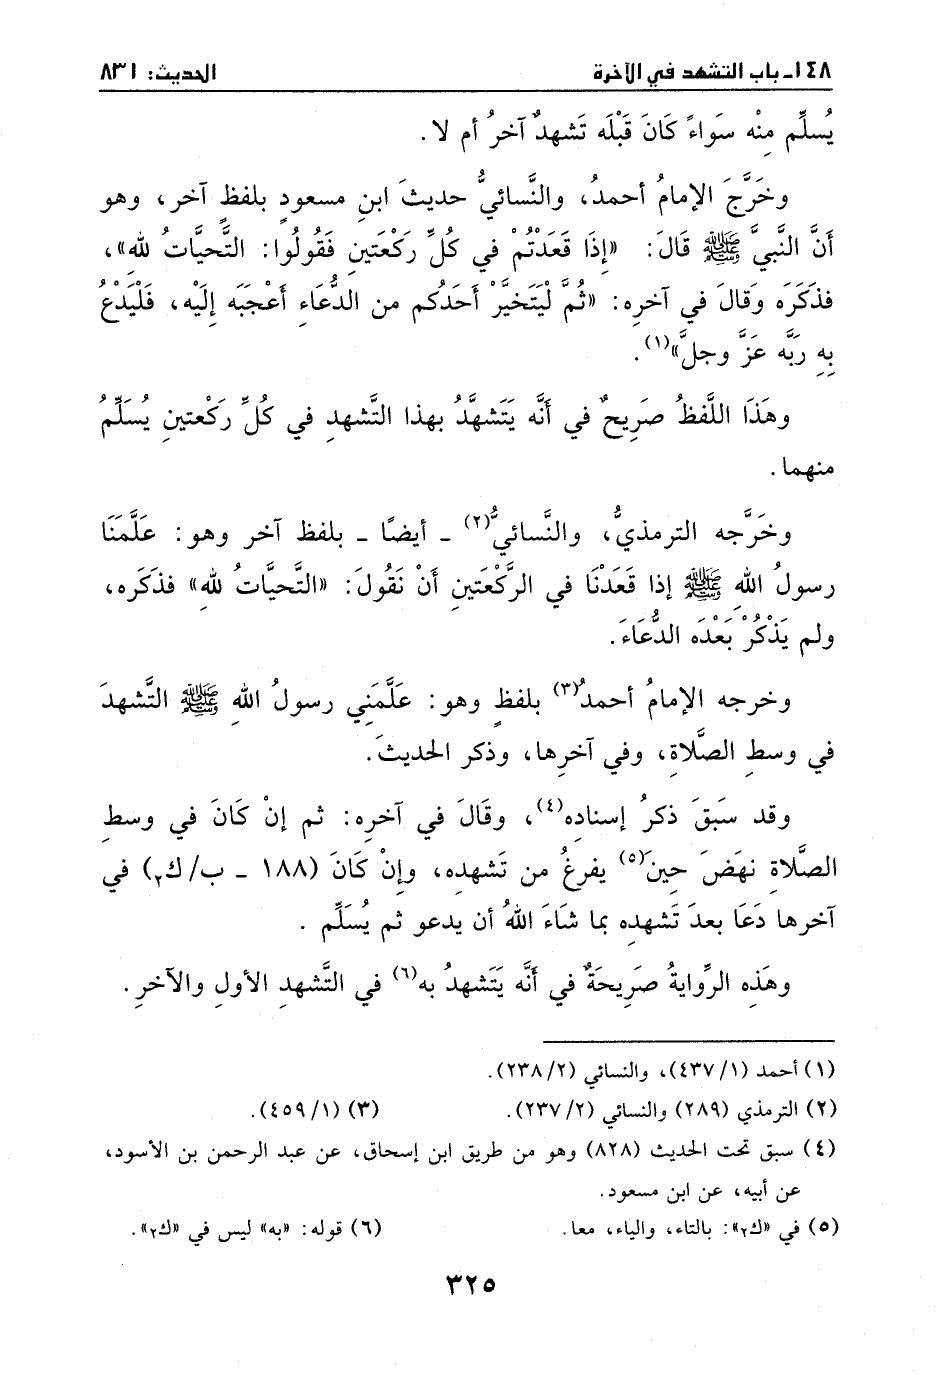 ١٤٨ـ باب التشهد في الآخرة الحديث: ٨٣١
يُسلِّم مِنْه سَواءً كَانَ قَبْلَه تَشهدٌ آخرُ أم لا.
وخَرَّجَ الإمامُ أحمدُ، والنَّسائيُّ حديثَ ابنِ مسعودٍ بلفظٍ آخر، وهو
أنَّ النَّبيَّ ﷺ قَالَ: «إذَا قَعَدْتُمْ في كُلِّ رَكْعَتَينِ فَقُولُوا: التَّحيَّاتُ للهِ»،
فذَكَرَه وَقالَ في آخرِه: «ثُمَّ لْيَتَخيَّرْ أحَدُكُم من الدُّعَاءِ أعْجَبَه إلَيْه، فَلْيَدْعُ
بِهِ رَبَّه عَزَّ وجلَّ»(١).
وهَذَا اللَّفظُ صَرِيحٌ في أنَّه يَتَشهَّدُ بهذا التَّشهدِ في كُلِّ رَكْعتينِ يُسَلِّمُ
منهما.
وخَرَّجه الترمذيُّ، والنَّسائيُّ(٢) ـ أيضًا ـ بلفظ آخر وهو: عَلَّمَنَا
رسولُ اللهِ ﷺ إذا قَعَدْنَا في الرَّكْعَتَينِ أنْ نَقُولَ: «التَّحيَّاتُ للهِ» فذَكَره،
ولم يَذْكُرْ بَعْدَه الدُّعَاءَ.
وخرجه الإمامُ أحمدُ(٣) بلفظٍ وهو: عَلَّمَنِي رسولُ اللهِ ﷺ التَّشهدَ
في وسطِ الصَّلاةِ، وفي آخرِها، وذكر الحديثَ.
وقد سَبَقَ ذكرُ إسنادِه(٤)، وقَالَ في آخرِه: ثم إنْ كَانَ في وسطِ
الصَّلاةِ نهَضَ حينَ(٥) يفرغُ من تَشهدِه، وإنْ كَانَ (١٨٨ ـ ب/ك٢) في
آخرِها دَعَا بعدَ تَشهدِه بما شَاءَ اللهُ أن يدعو ثم يُسَلِّم .
وهَذِه الرِّوايةُ صَرِيحَةٌ في أنَّه يَتَشهدُ به(٦) في التَّشهدِ الأولِ والآخرِ.
(١) أحمد (١/ ٤٣٧)، والنسائي (٢٣٨/٢).
(٢) الترمذي (٢٨٩) والنسائي (٢٣٧/٢). (٣) (٤٥٩/١).
(٤) سبق تحت الحديث (٨٢٨) وهو من طريق ابن إسحاق، عن عبد الرحمن بن الأسود،
عن أبيه، عن ابن مسعود.
(٥) في «ك٢»: بالتاء، والياء، معا. (٦) قوله: «به» ليس في «ك٢».
٣٢٥